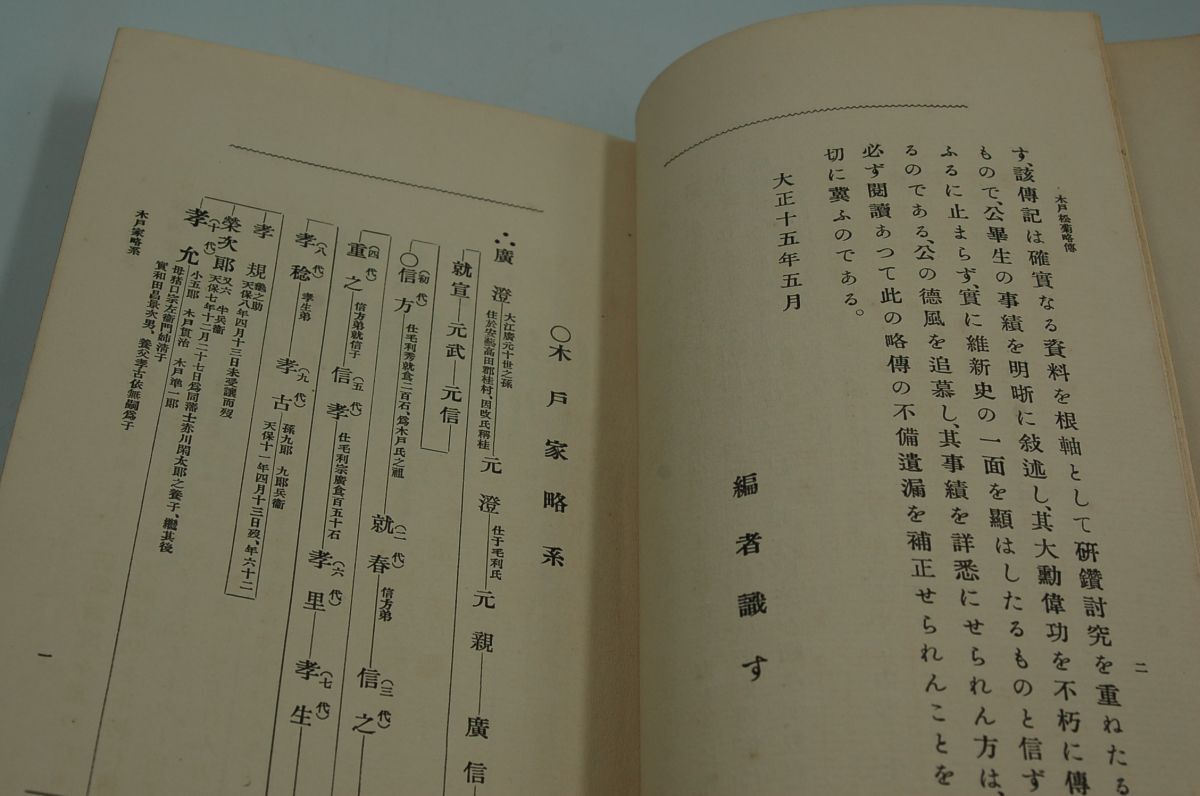 木戸松菊略傳
二
す、該傳記は確實なる資料を根軸として研鑽討究を重ねたる
もので、公畢生の事績を明晰に敍述し、其大勳偉功を不朽に傳
ふるに止まらず、實に維新史の一面を顯はしたるものと信ず
るのである、公の德風を追慕し、其事績を詳悉にせられん方は、
必ず閱讀あつて此の略傳の不備遺漏を補正せられんことを
切に冀ふのである。
大正十五年五月
編者識す
○木戸家略系
廣澄 大江廣元十世之孫 住於安藝高田郡桂村、因改氏稱桂 元澄 仕于毛利氏 元親 廣信
就宣 元武 元信
(初代) ○信方 仕毛利秀就食二百石、爲木戸氏之祖 (二代) 就春 信方弟 (三代) 信之
(四代) 重之 信方弟就信子 (五代) 信孝 仕毛利宗廣食百五十石 (六代) 孝里 (七代) 孝生
(八代) 孝稔 孝生弟 (九代) 孝古 孫九郎 九郎兵衞 天保十一年四月十三日歿、年六十二
孝規 龜之助 天保八年四月十三日未受讓而歿
榮次郎 又六 半兵衞 天保七年十二月二十七日爲同藩士赤川閑太郎之養子、繼其後
(十代) 孝允 小五郎 木戸貫治 木戸準一郎 母豬口宗左衞門姉淸子 實和田昌景次男、養父孝古依無嗣爲子
木戸家略系
一